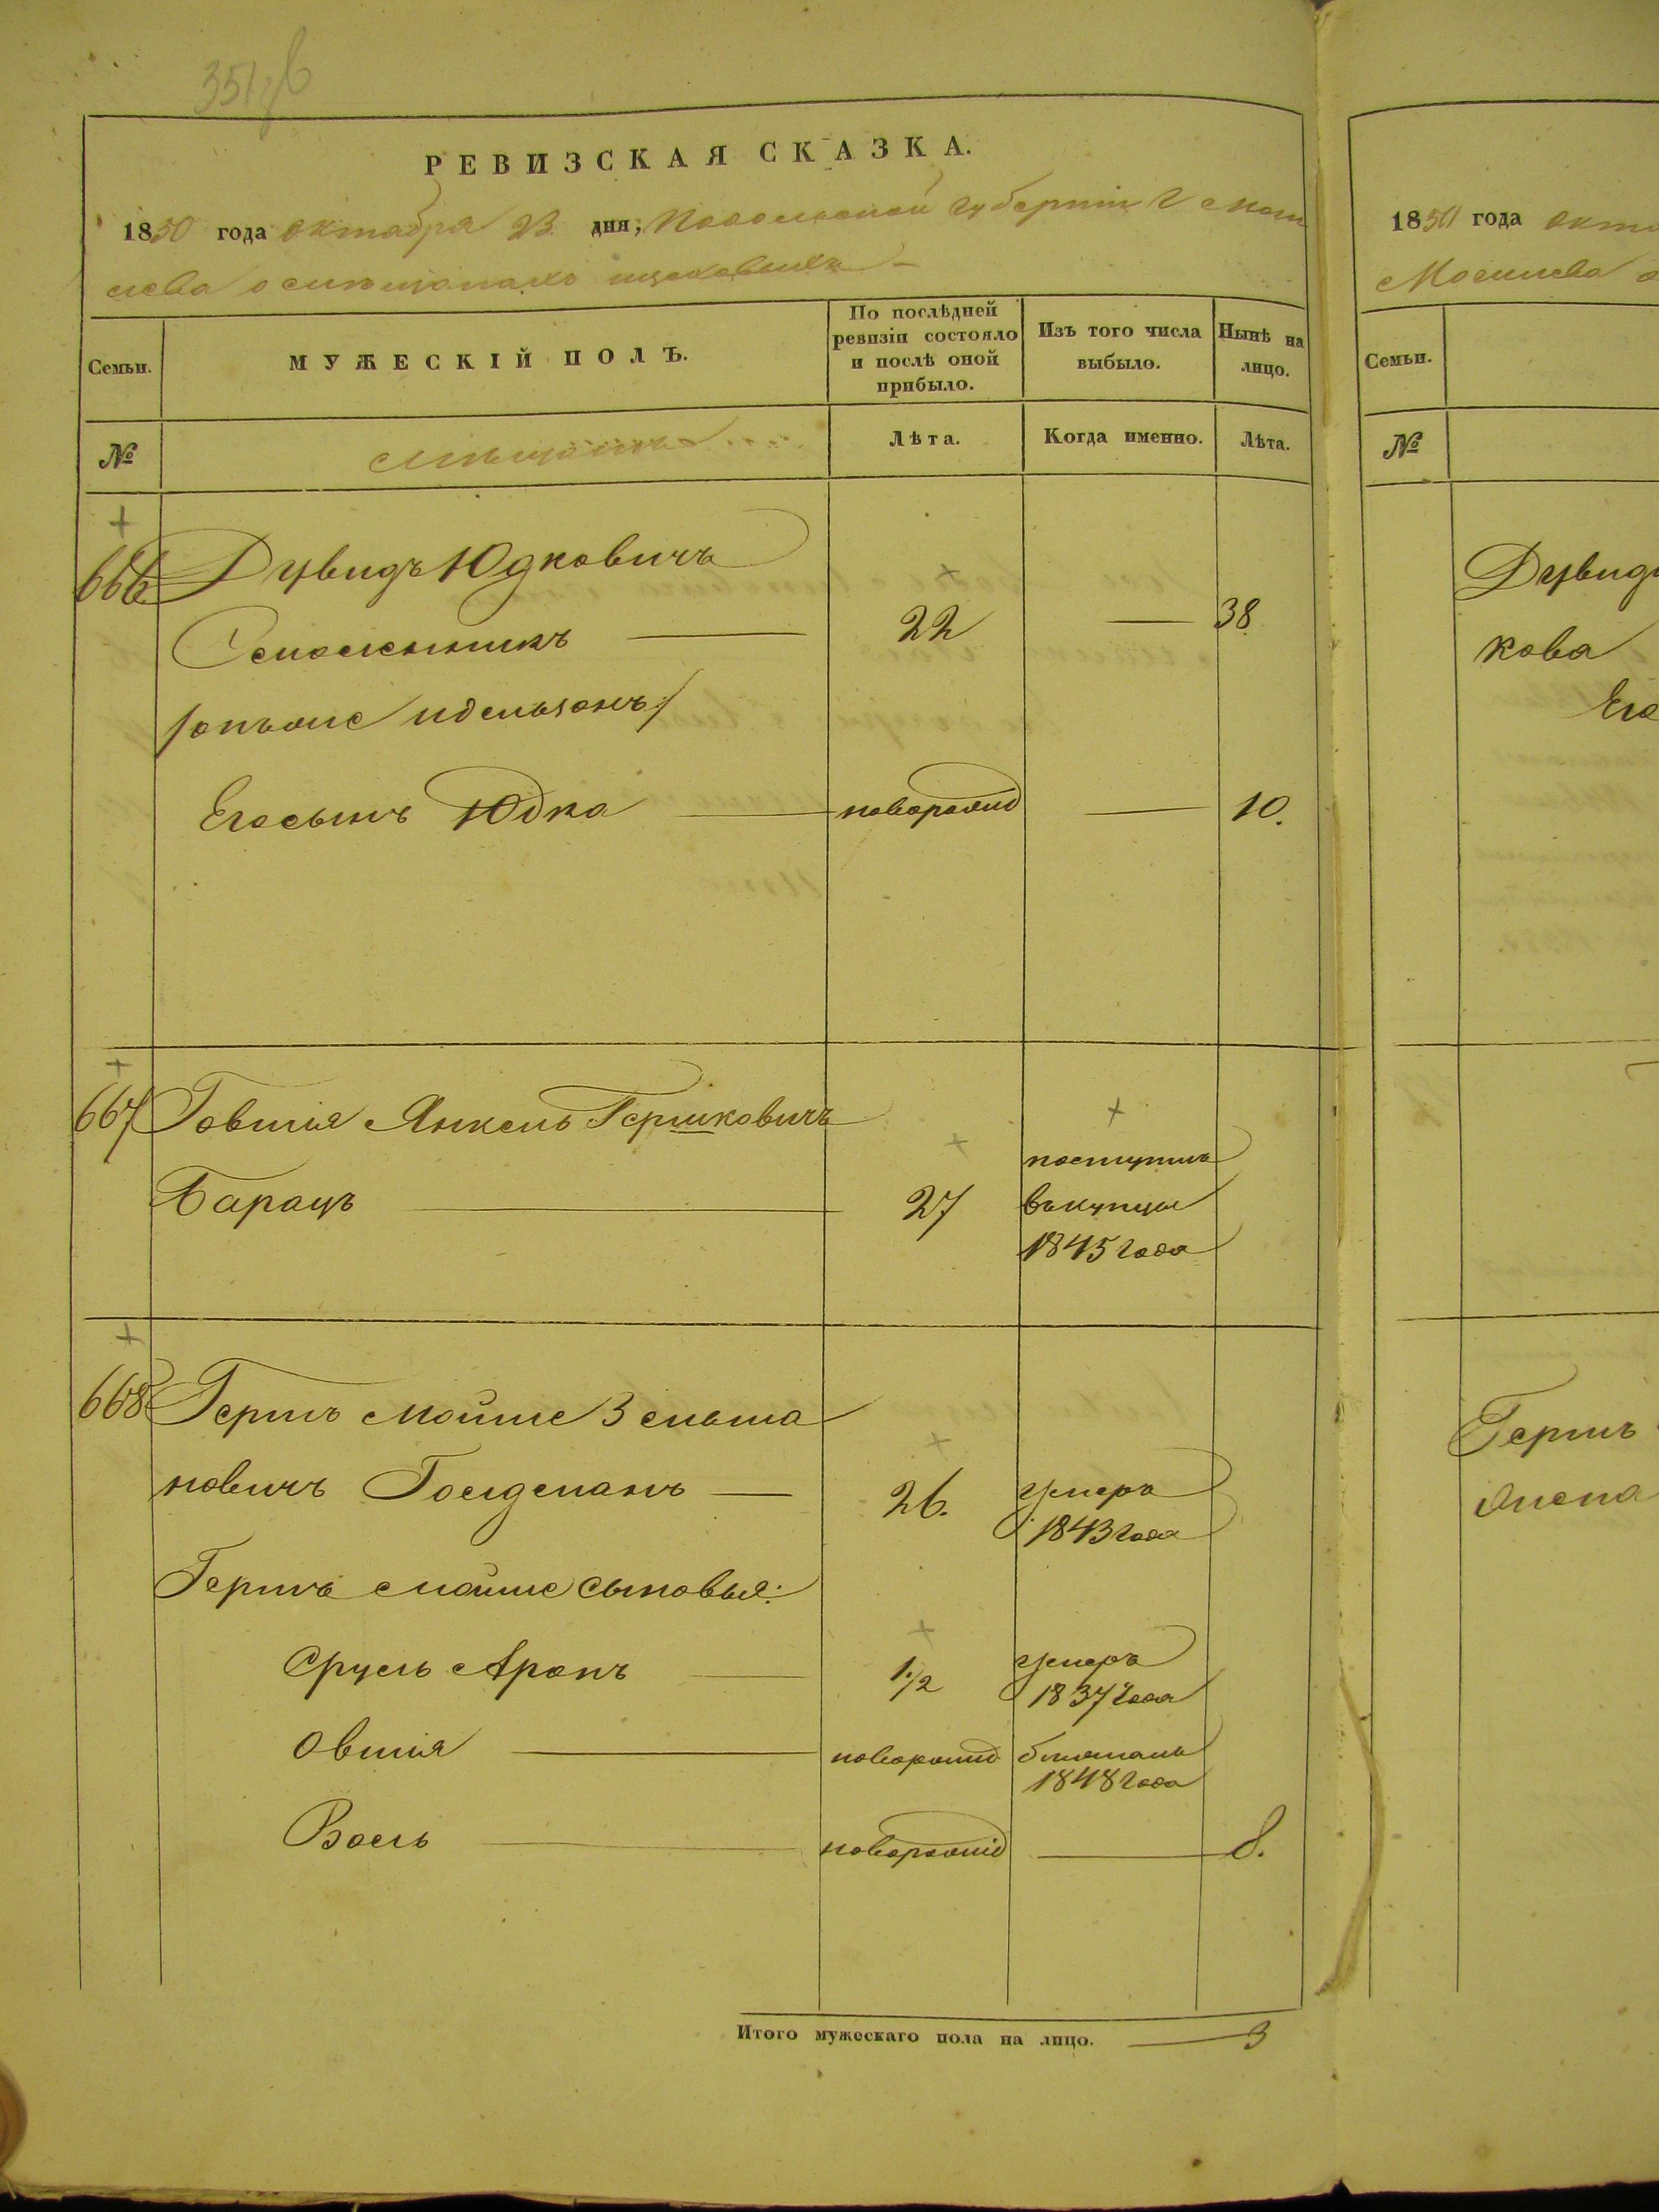 РЕВИЗСКАЯ СКАЗКА.
1850 года октября 23 дня, Подольской губернiи г Моги
лева о мѣщанахъ
Семьи.
МУЖЕСКІЙ ПОЛЪ.
По послѣдней ревизіи состояло и послѣ оной прибыло.
Изъ того числа выбыло.
Нынѣ на лицо.
№
Лѣта.
Когда именно.
Лѣта.
666 Дувидъ Юдковичъ
22 — 38
Его сынъ Юдка — новорожд — 10.
667 Говшія Янкель Гершковичъ
поступилъ
Барацъ — 27 въ купцы
1845 года
668 Гершъ Мойше Зельма
новичъ Голдманъ — 26. умеръ
1843 года
Гершъ Мойше сыновья:
Сруль Аронъ — 1/2 умеръ
1837 года
Овшія — новорожд
1848 года
Волъ — новорожд — 8.
Итого мужескаго пола на лицо. — 3
1850 года окт
Могилева о
Семьи.
№
Дувид
кова
Его
Гершъ